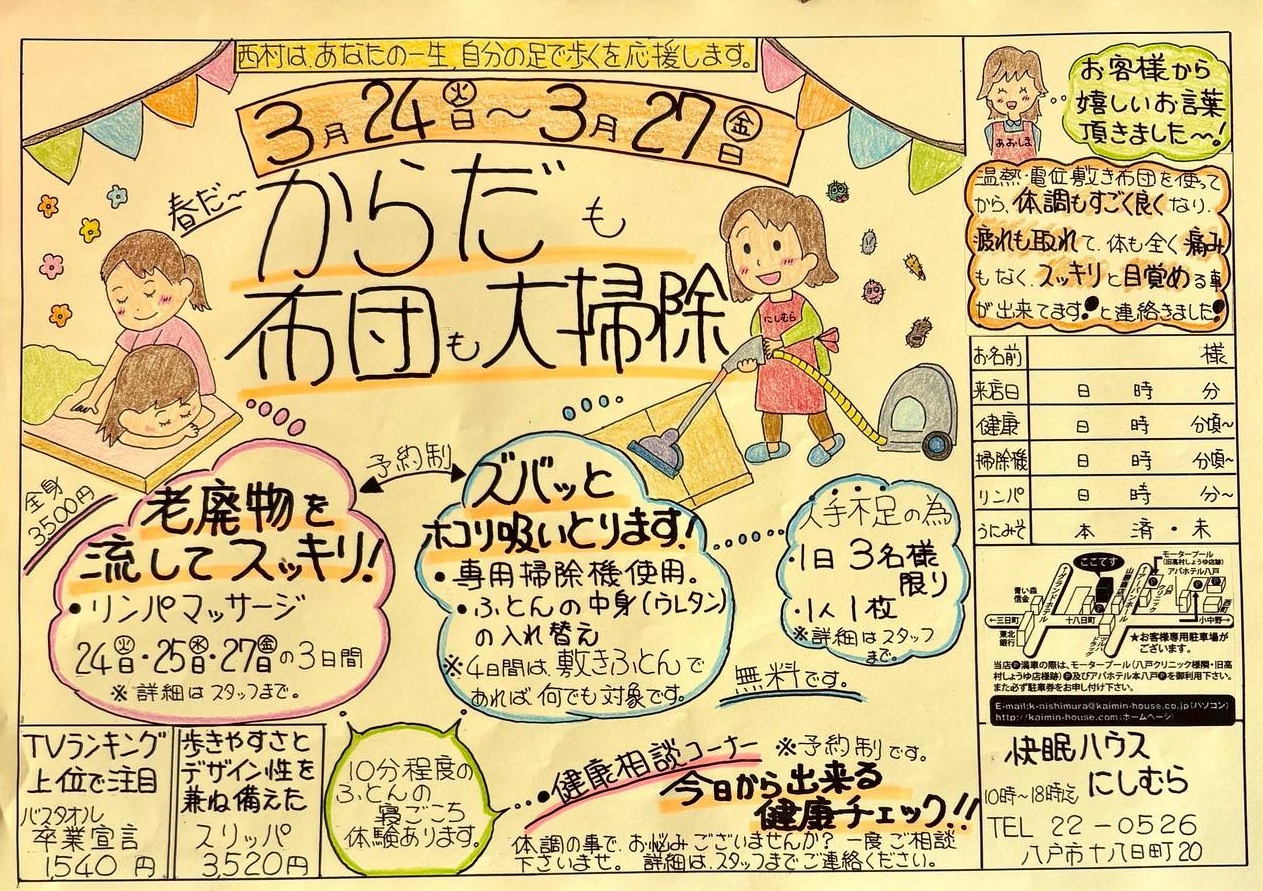 西村は、あなたの一生、自分の足で歩くを応援します。
3月24㊋日〜3月27㊎日
春だ〜
からだも
布団も大掃除
にしむら
全身
3500円
予約制
老廃物を
流してスッキリ!
・リンパマッサージ
24㊋日・25㊌日・27㊎日の3日間
※詳細はスタッフまで。
ズバッと
ホコリ吸いとります!
・専用掃除機使用。
・ふとんの中身(ウレタン)
の入れ替え
※4日間は、敷きふとんで
あれば、何でも対象です。
人手不足の為
・1日3名様
限り
・1人1枚
※詳細はスタッフ
まで。
無料です。
TVランキング
上位で注目
バスタオル
卒業宣言
1,540円
歩きやすさと
デザイン性を
兼ね備えた
スリッパ
3,520円
10分程度の
ふとんの
寝ごこち
体験あります。
・健康相談コーナー ※予約制です。
今日から出来る
健康チェック!!
体調の事で、お悩みございませんか?一度ご相談
下さいませ。詳細は、スタッフまでご連絡ください。
あおしま
お客様から
嬉しいお言葉
頂きました〜!
温熱・電位敷き布団を使って
から、体調もすごく良くなり、
疲れも取れて、体も全く痛み
もなく、スッキリと目覚める事
が出来てます!と連絡きました!
お名前 様
来店日 日 時 分
健康 日 時 分頃~
掃除機 日 時 分頃~
リンパ 日 時 分~
うにみそ 本 済・未
ここです
モータープール
(旧高村しょうゆ店跡)
アパホテル八戸
青い森
信金
グランドホテル
←三日町
十八日町
小中野→
東北
銀行
★お客様専用駐車場が
ございます。
当店Ⓟ満車の際は、モータープール(八戸クリニック様隣・旧高
村しょうゆ店様跡)Ⓟ及びアパホテル本八戸Ⓟを御利用下さい。
また必ず駐車券をお申し付け下さい。
E-mail:k-nishimura@kaimin-house.co.jp(パソコン)
http://kaimin-house.com(ホームページ)
快眠ハウス
にしむら
10時〜18時迄
TEL 22-0526
八戸市十八日町20